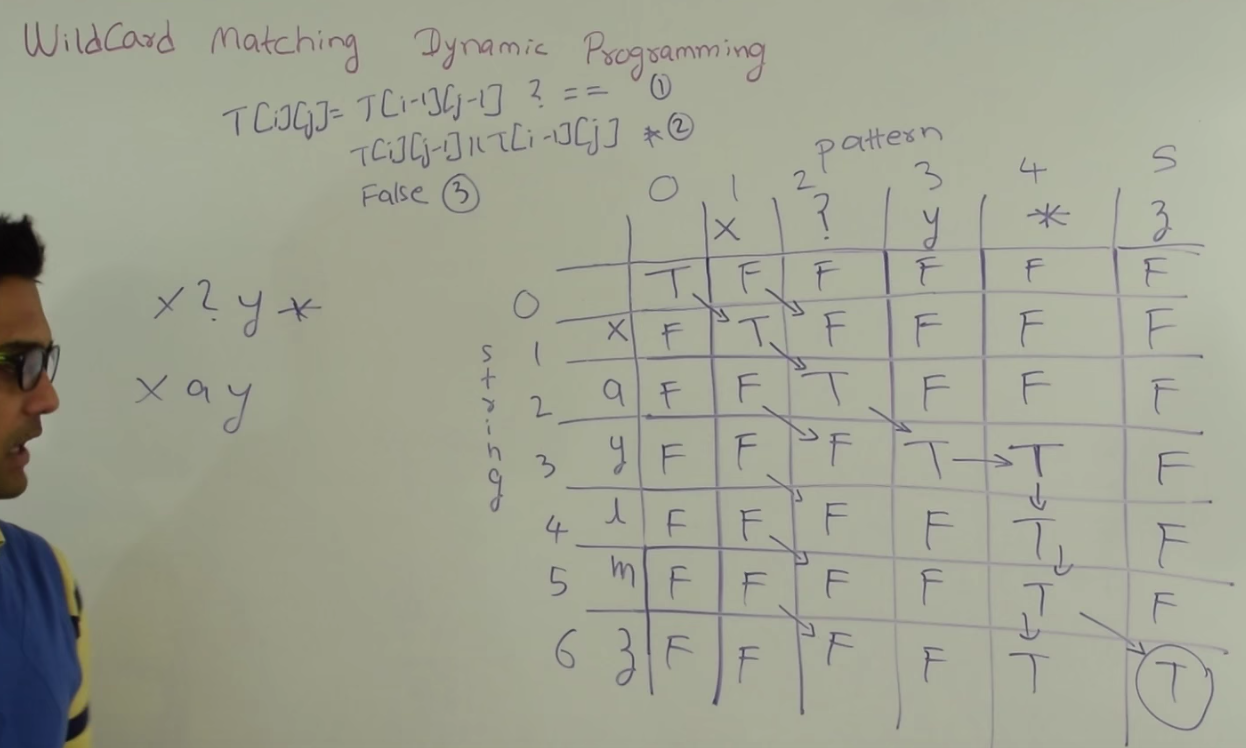 WildCard Matching Dynamic Programming
T[i][j]= T[i-1][j-1] ? == ①
T[i][j-1] || T[i-1][j] * ②
False ③
pattern
0 1 2 3 4 5
x ? y * z
0 T F F F F F
1 x F T F F F F
2 a F F T F F F
3 y F F F T T F
4 l F F F F T F
5 m F F F F T F
6 z F F F F T T
string
x ? y *
x a y